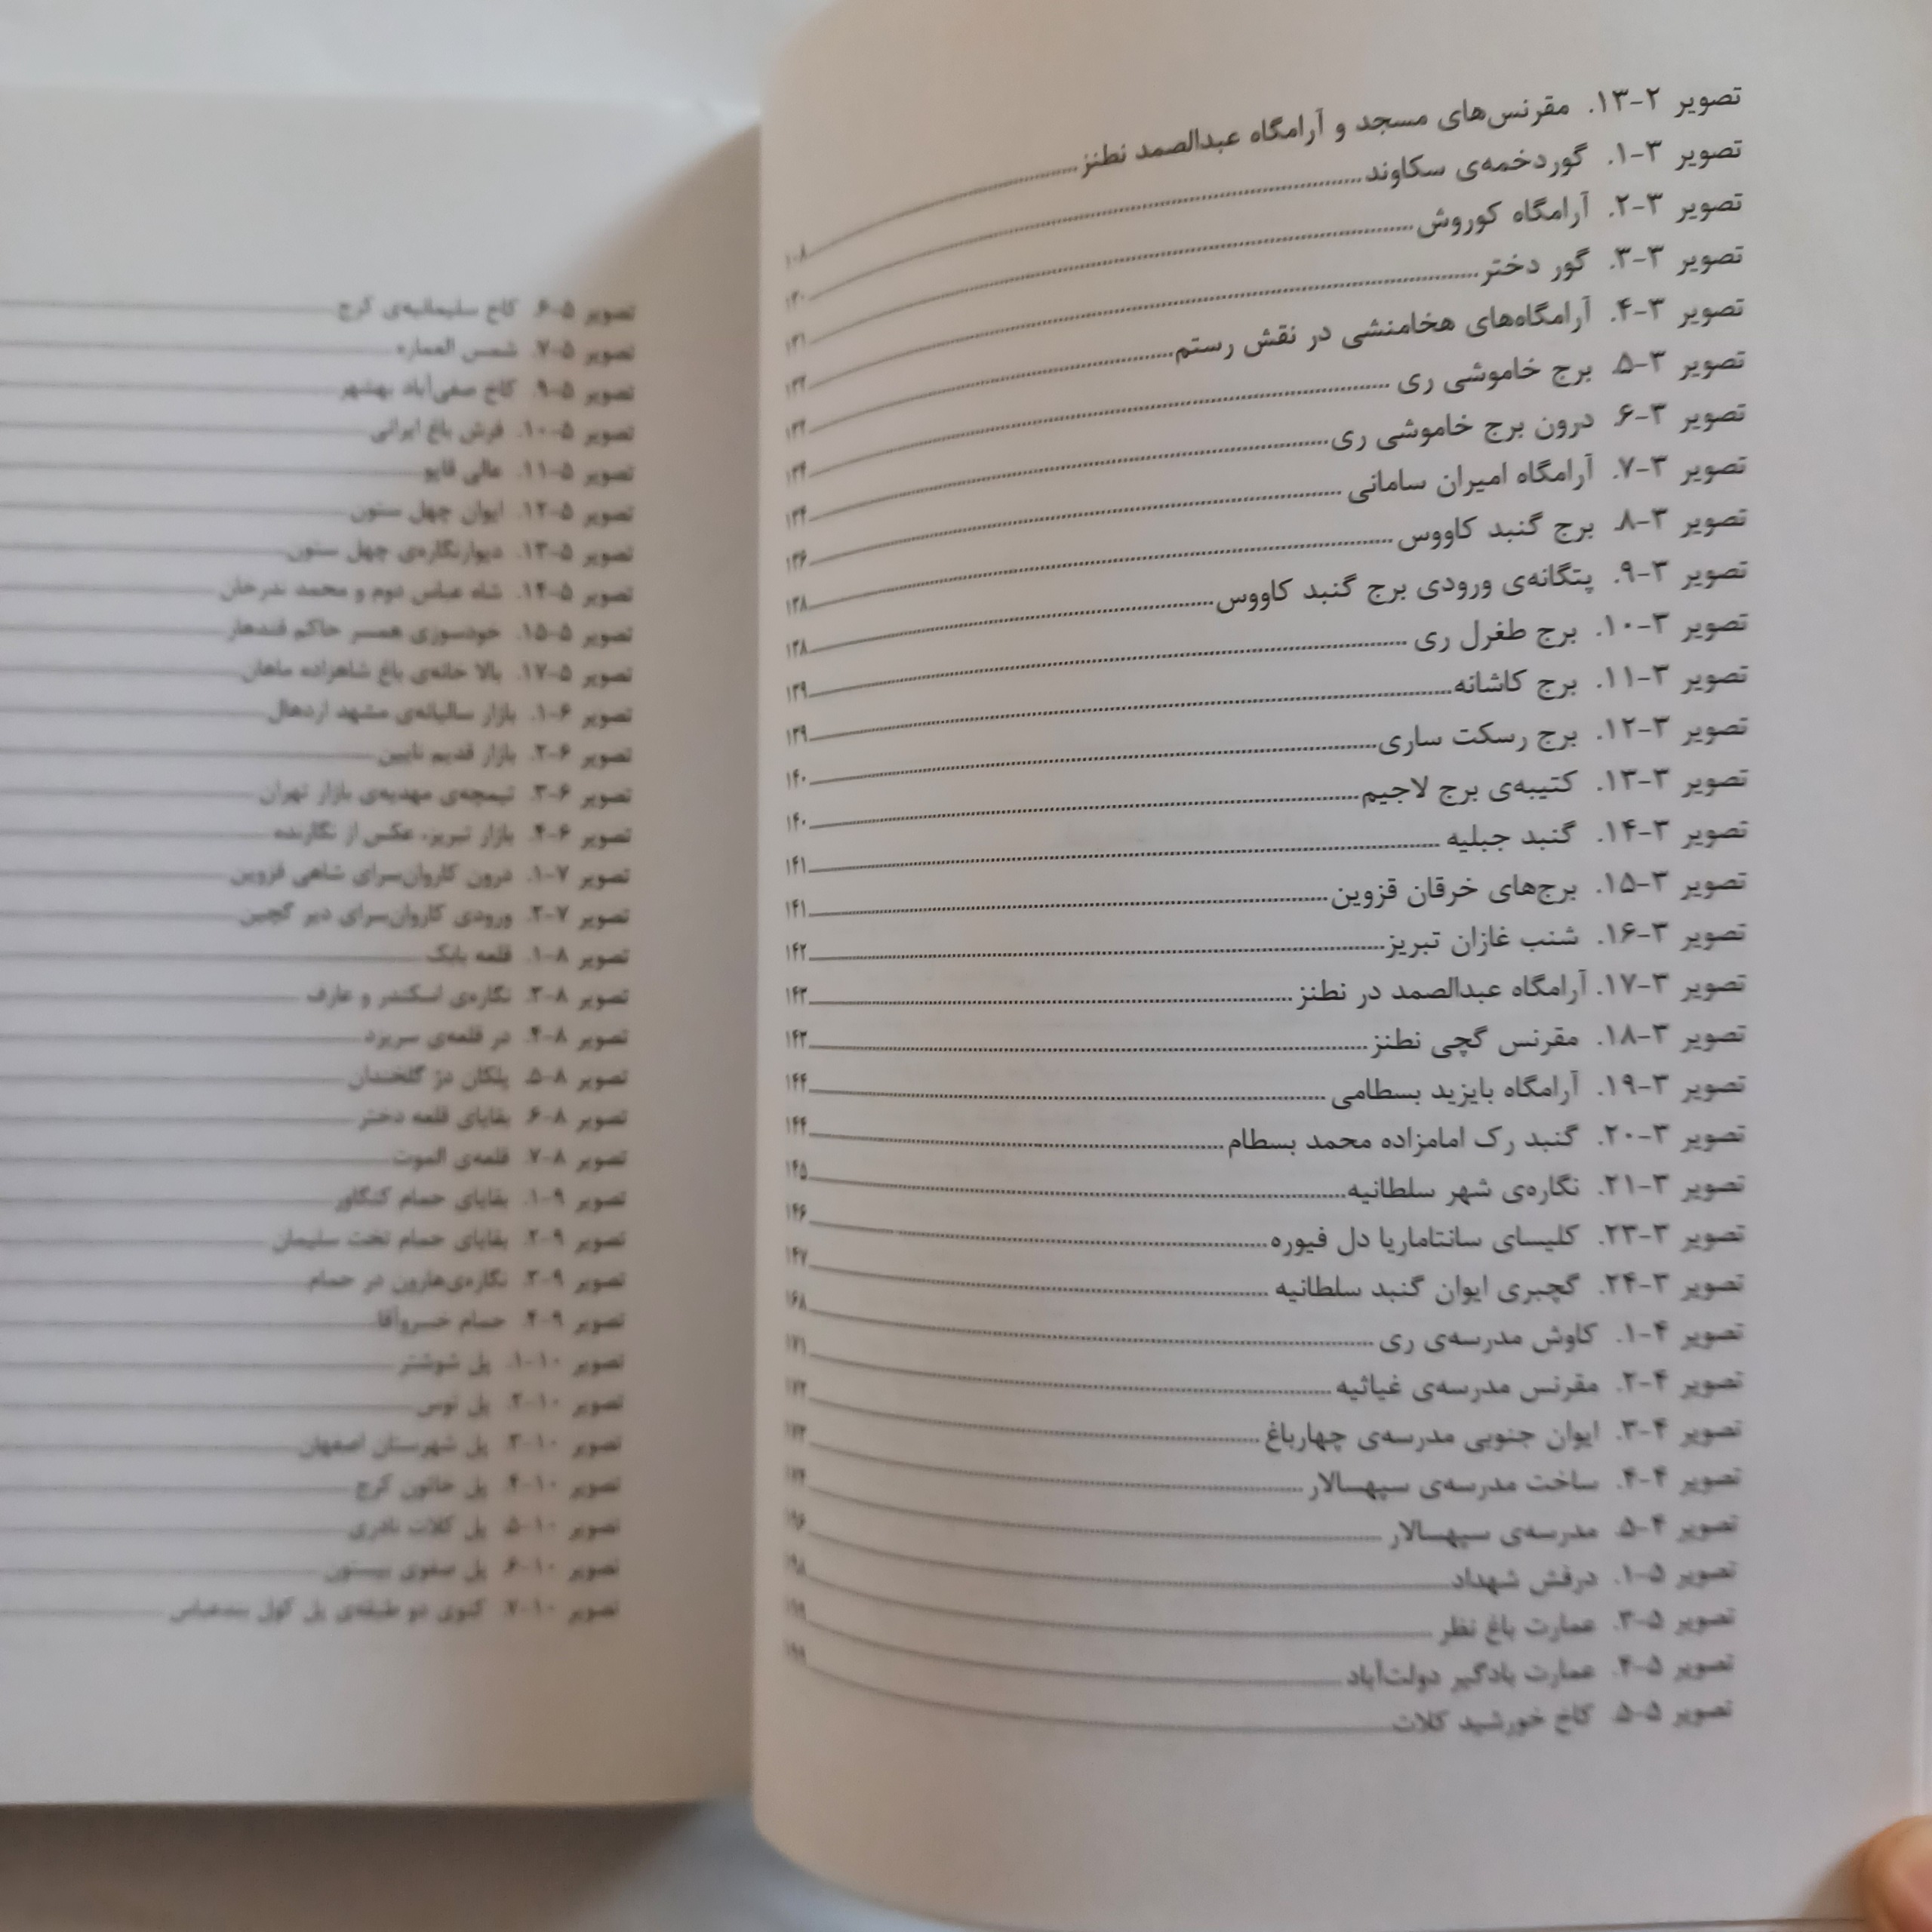 تصویر ۲-۱۳. مقرنس‌های مسجد و آرامگاه عبدالصمد نطنز ۱۰۸
تصویر ۳-۱. گوردخمه‌ی سکاوند ۱۳۰
تصویر ۳-۲. آرامگاه کوروش ۱۳۱
تصویر ۳-۳. گور دختر ۱۳۲
تصویر ۳-۴. آرامگاه‌های هخامنشی در نقش رستم
تصویر ۳-۵. برج خاموشی ری ۱۳۴
تصویر ۳-۶. درون برج خاموشی ری ۱۳۴
تصویر ۳-۷. آرامگاه امیران سامانی ۱۳۶
تصویر ۳-۸. برج گنبد کاووس ۱۳۸
تصویر ۳-۹. پتگانه‌ی ورودی برج گنبد کاووس ۱۳۸
تصویر ۳-۱۰. برج طغرل ری ۱۳۹
تصویر ۳-۱۱. برج کاشانه ۱۳۹
تصویر ۳-۱۲. برج رسکت ساری ۱۴۰
تصویر ۳-۱۳. کتیبه‌ی برج لاجیم ۱۴۰
تصویر ۳-۱۴. گنبد جبلیه ۱۴۱
تصویر ۳-۱۵. برج‌های خرقان قزوین ۱۴۱
تصویر ۳-۱۶. شنب غازان تبریز ۱۴۲
تصویر ۳-۱۷. آرامگاه عبدالصمد در نطنز ۱۴۳
تصویر ۳-۱۸. مقرنس گچی نطنز ۱۴۳
تصویر ۳-۱۹. آرامگاه بایزید بسطامی ۱۴۴
تصویر ۳-۲۰. گنبد رک امامزاده محمد بسطام ۱۴۴
تصویر ۳-۲۱. نگاره‌ی شهر سلطانیه ۱۴۵
تصویر ۳-۲۳. کلیسای سانتاماریا دل فیوره ۱۴۶
تصویر ۳-۲۴. گچبری ایوان گنبد سلطانیه ۱۴۷
تصویر ۴-۱. کاوش مدرسه‌ی ری ۱۶۸
تصویر ۴-۲. مقرنس مدرسه‌ی غیاثیه ۱۷۱
تصویر ۴-۳. ایوان جنوبی مدرسه‌ی چهارباغ
تصویر ۴-۴. ساخت مدرسه‌ی سپهسالار
تصویر ۴-۵. مدرسه‌ی سپهسالار
تصویر ۵-۱. درفش شهداد
تصویر ۵-۳. عمارت باغ نظر
تصویر ۵-۴. عمارت بادگیر دولت‌آباد
تصویر ۵-۵. کاخ خورشید کلات
تصویر ۵-۶. کاخ سلیمانیه‌ی کرج
تصویر ۵-۷. شمس العماره
تصویر ۵-۹. کاخ صفی‌آباد بهشهر
تصویر ۵-۱۰. فرش باغ ایرانی
تصویر ۵-۱۱. عالی قاپو
تصویر ۵-۱۲. ایوان چهل ستون
تصویر ۵-۱۳. دیوارنگاره‌ی چهل ستون
تصویر ۵-۱۴. شاه عباس دوم و محمد ندرخان
تصویر ۵-۱۵. خودسوزی همسر حاکم قندهار
تصویر ۵-۱۷. بالا خانه‌ی باغ شاهزاده ماهان
تصویر ۶-۱. بازار سالیانه‌ی مشهد اردهال
تصویر ۶-۲. بازار قدیم نایین
تصویر ۶-۳. تیمچه‌ی مهدیه‌ی بازار تهران
تصویر ۶-۴. بازار تبریز، عکس از نگارنده
تصویر ۷-۱. درون کاروان‌سرای شاهی قزوین
تصویر ۷-۲. ورودی کاروان‌سرای دیر گچین
تصویر ۸-۱. قلعه بابک
تصویر ۸-۳. نگاره‌ی اسکندر و عارف
تصویر ۸-۴. در قلعه‌ی سریزد
تصویر ۸-۵. پلکان دژ گلخندان
تصویر ۸-۶. بقایای قلعه دختر
تصویر ۸-۷. قلعه‌ی الموت
تصویر ۹-۱. بقایای حمام کنگاور
تصویر ۹-۲. بقایای حمام تخت سلیمان
تصویر ۹-۳. نگاره‌ی هارون در حمام
تصویر ۹-۴. حمام خسروآقا
تصویر ۱۰-۱. پل شوشتر
تصویر ۱۰-۲. پل توس
تصویر ۱۰-۳. پل شهرستان اصفهان
تصویر ۱۰-۴. پل خاتون کرج
تصویر ۱۰-۵. پل کلات نادری
تصویر ۱۰-۶. پل صفوی بیستون
تصویر ۱۰-۷. کنوی دو طبقه‌ی پل کول